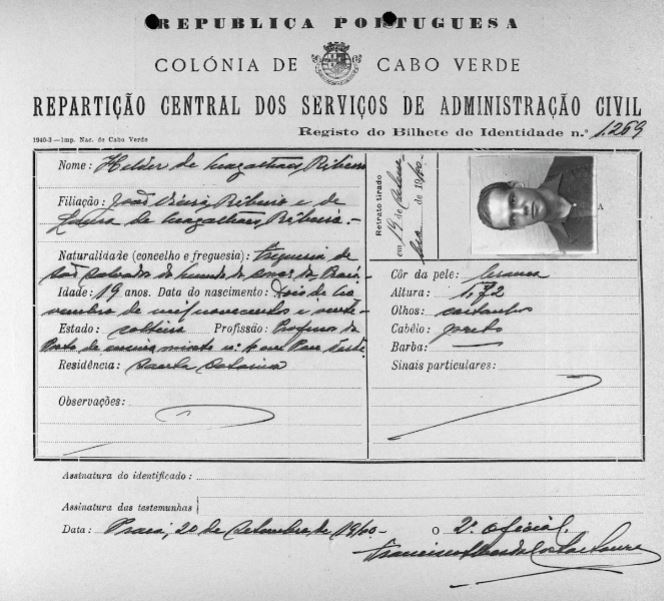 REPUBLICA PORTUGUESA
COLÓNIA DE CABO VERDE
REPARTIÇÃO CENTRAL DOS SERVIÇOS DE ADMINISTRAÇÃO CIVIL
1940-3—Imp. Nac. de Cabo Verde
Registo do Bilhete de Identidade n.º 1.269
Nome: de Magalhães Ribeiro
Filiação: João Ribeiro e de
de Magalhães Ribeiro.—
Naturalidade (concelho e freguesia): freguesia de
São Salvador do Mundo do
Idade: 19 anos. Data do nascimento: Dois de
de mil novecentos e
Estado: solteiro Profissão: Professor do
Posto de
Residência: Santa Catarina
Observações:
Retrato tirado
em 19 de de 1940.
A
Côr da pele: branca
Altura: 1,72
Olhos: castanhos
Cabêlo: preto
Barba: —
Sinais particulares:
Assinatura do identificado:
Assinatura das testemunhas
Data: Praia, 20 de Setembro de 1940.
O 2º Oficial,
Francisco